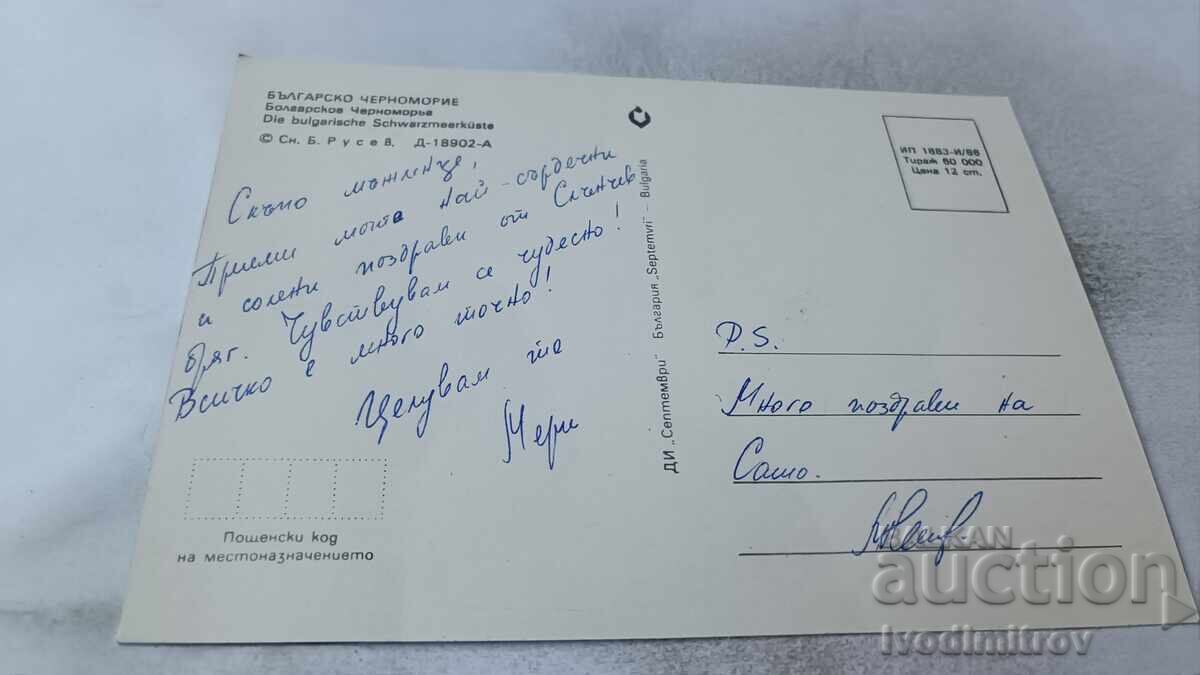 БЪЛГАРСКО ЧЕРНОМОРИЕ
Болгарское Черноморье
Die bulgarische Schwarzmeerküste
© Сн. Б. Русев, Д-18902-А
Скъпо мъженце,
Приеми моите най-сърдечни
и солени поздрави от Слънчев
бряг. Чувствувам се чудесно!
Всичко е много точно!
Целувам те
Мери
Пощенски код
на местоназначението
ДИ „Септември" България „Septemvri" – Bulgaria
ИП 1883-И/86
Тираж 60 000
Цена 12 ст.
P.S.
Много поздрави на
Сашо.
BALKAN
auction
Ivodimitrov